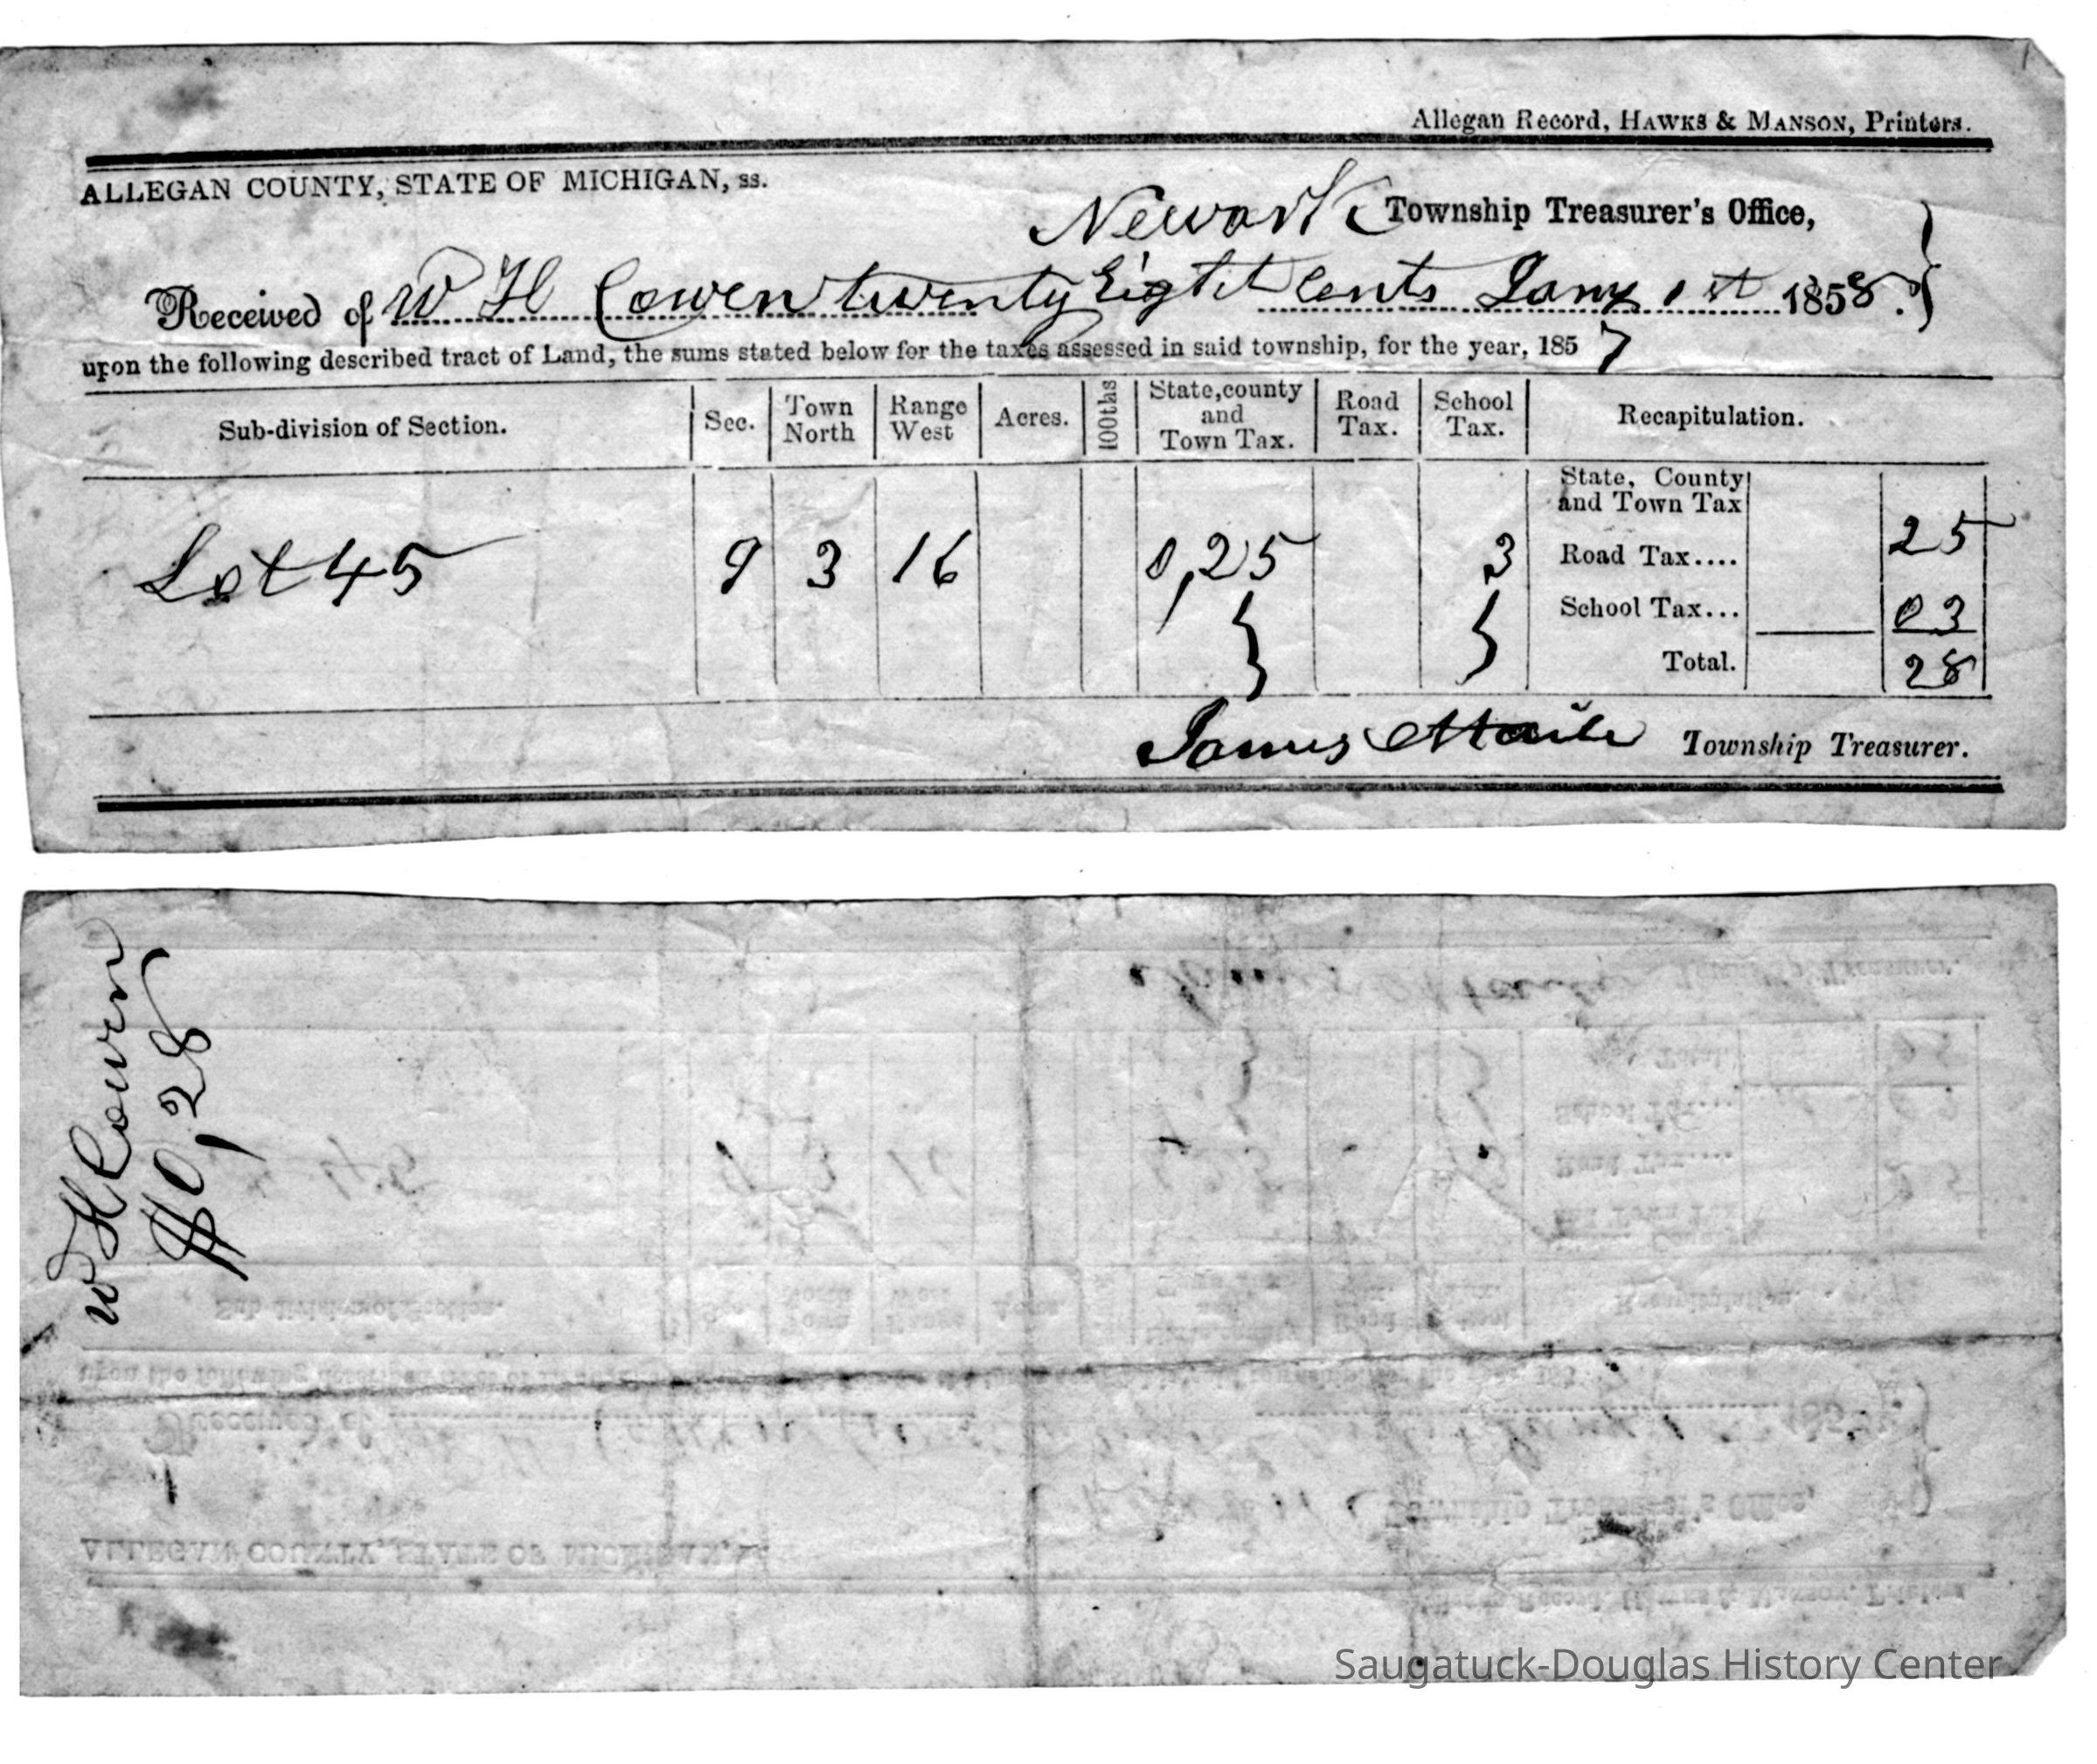 Allegan Record, HAWKS & MANSON, Printers.
ALLEGAN COUNTY, STATE OF MICHIGAN, ss.
Newark Township Treasurer's Office,
Received of W H Cowen twenty Eight Cents Jany 1st 1858.
upon the following described tract of Land, the sums stated below for the taxes assessed in said township, for the year, 1857
Sub-division of Section. Sec. Town North Range West Acres. 100ths State, county and Town Tax. Road Tax. School Tax. Recapitulation.
Lot 45 9 3 16 0,25 3
State, County and Town Tax 25
Road Tax....
School Tax... 03
Total. 28
James Township Treasurer.
W H Cowen
$0,28
Saugatuck-Douglas History Center